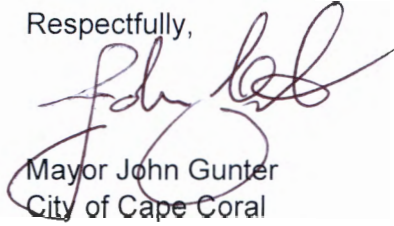 Respectfully,
John
Mayor John Gunter
City of Cape Coral